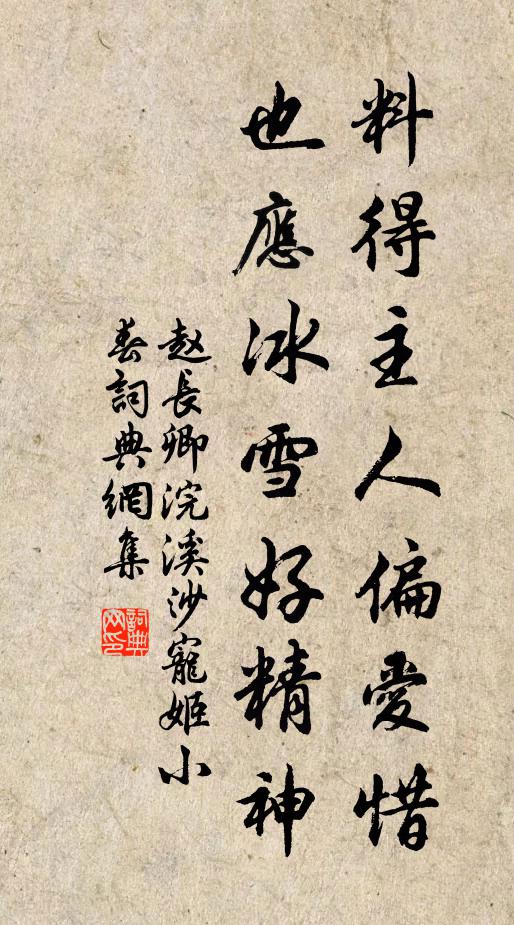 料得主人偏愛惜
也應冰雪好精神
赵長卿浣溪沙寵姬小
春詞典網集
詞典
网印